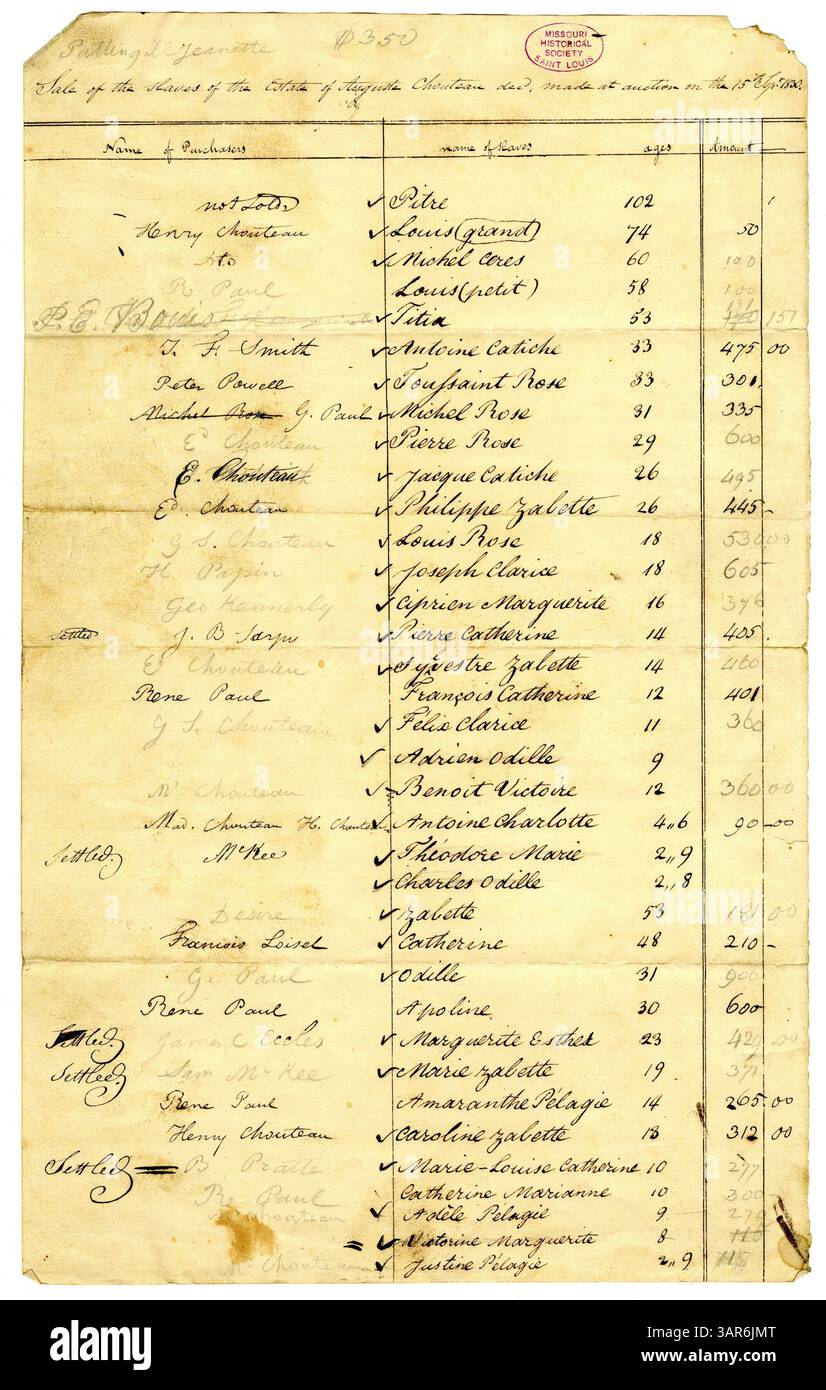 Pattengill Jeanette $350
MISSOURI
HISTORICAL
SOCIETY
SAINT LOUIS
Sale of the slaves of the Estate of Auguste Chouteau decd, made at auction on the 15th
Name of Purchasers name of slaves ages Amount
not Sold ✓ Pitre 102
Henry Chouteau ✓ Louis (grand) 74 50
Dto ✓ Michel Ceres 60 100
R Paul Louis (petit) 58 100
P. E. ✓ Titia 53 151
T. F. Smith ✓ Antoine Catiche 33 475 00
Peter Powell ✓ Toussaint Rose 33 301
Michel Rose G. Paul ✓ Michel Rose 31 335
Ed Chouteau ✓ Pierre Rose 29 600
E. Chouteau ✓ Jacque Catiche 26 495
Ed. Chouteau ✓ Philippe Zabette 26 445 -
G S. Chouteau ✓ Louis Rose 18 530 00
H Papin ✓ Joseph Clarice 18 605
Geo Kennerly ✓ Ciprien Marguerite 16 376
Settled J. B Sarpy ✓ Pierre Catherine 14 405
E Chouteau ✓ Sylvestre Zabette 14 460
Rene Paul François Catherine 12 401
G S. Chouteau ✓ Félix Clarice 11 360
✓ Adrien Odille 9
Chouteau ✓ Benoit Victoire 12 360 00
Mad. Chouteau H. Chouteau ✓ Antoine Charlotte 4,,6 90 -00
Settled McKee ✓ Théodore Marie 2,,9
✓ Charles Odille 2,,8
Desire ✓ Zabette 53 181 00
Francois Loisel ✓ Catherine 48 210 -
G. Paul ✓ Odille 31 900
Rene Paul Apoline 30 600
Settled James C Eccles ✓ Marguerite Esther 23 420 00
Settled Sam McKee ✓ Marie Zabette 19 371
Rene Paul Amaranthe Pélagie 14 265 00
Henry Chouteau ✓ Caroline Zabette 13 312 00
Settled B Pratte ✓ Marie-Louise Catherine 10 277
Re Paul Catherine Marianne 10 300
Chouteau ✓ Adèle Pélagie 9
✓ Victorine Marguerite 8 115
Chouteau ✓ Justine Pélagie 2,,9 115
alamy
Image ID: 3AR6JMT
www.alamy.com